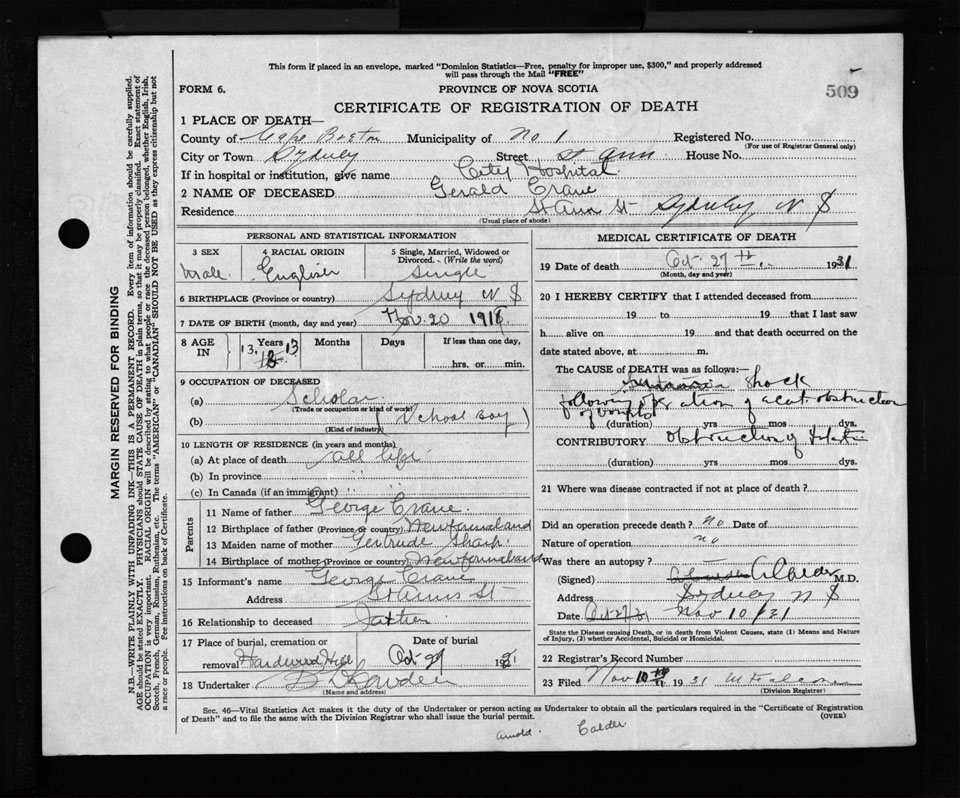 This form if placed in an envelope, marked "Dominion Statistics—Free, penalty for improper use, $300," and properly addressed
will pass through the Mail "FREE"
FORM 6.
PROVINCE OF NOVA SCOTIA
509
CERTIFICATE OF REGISTRATION OF DEATH
1 PLACE OF DEATH—
County of Cape Breton Municipality of No 1 Registered No.
(For use of Registrar General only)
City or Town Sydney Street St Ann House No.
If in hospital or institution, give name City Hospital
2 NAME OF DECEASED Gerald Crane
Residence St Ann St Sydney N S
(Usual place of abode)
PERSONAL AND STATISTICAL INFORMATION
3 SEX Male
4 RACIAL ORIGIN English
5 Single, Married, Widowed or Divorced. (Write the word) Single
6 BIRTHPLACE (Province or country) Sydney N S
7 DATE OF BIRTH (month, day and year) Nov. 20 1918
8 AGE IN 13, Years 13 Months Days If less than one day, hrs. or min.
9 OCCUPATION OF DECEASED
(a) Scholar
(Trade or occupation or kind of work)
(b) (School Boy)
(Kind of industry)
10 LENGTH OF RESIDENCE (in years and months)
(a) At place of death all life
(b) In province " "
(c) In Canada (if an immigrant) " "
Parents
11 Name of father George Crane
12 Birthplace of father (Province or country) Newfoundland
13 Maiden name of mother Gertrude Sharp
14 Birthplace of mother (Province or country) Newfoundland
15 Informant's name George Crane
Address St Anns St
16 Relationship to deceased Father
17 Place of burial, cremation or Date of burial
removal Hardwood Hill Oct 29 1931
18 Undertaker
(Name and address)
MEDICAL CERTIFICATE OF DEATH
19 Date of death Oct. 27th 1931
(Month, day and year)
20 I HEREBY CERTIFY that I attended deceased from
19 to 19 that I last saw
h alive on 19 and that death occurred on
date stated above, at m.
The CAUSE OF DEATH was as follows:—
Shock
following operation of acute obstruction
of bowels
(duration) yrs mos dys.
CONTRIBUTORY Obstruction of
(duration) yrs mos dys.
21 Where was disease contracted if not at place of death?
Did an operation precede death? no Date of
Nature of operation no
Was there an autopsy?
(Signed) A Calder M.D.
Address Sydney N S
Date Oct 27/31 Nov 10/31
State the Disease causing Death, or in death from Violent Causes, state (1) Means and Nature
of Injury, (2) whether Accidental, Suicidal or Homicidal.
22 Registrar's Record Number
23 Filed Nov 10th 1931
(Division Registrar)
Sec. 46—Vital Statistics Act makes it the duty of the Undertaker or person acting as Undertaker to obtain all the particulars required in the "Certificate of Registration
of Death" and to file the same with the Division Registrar who shall issue the burial permit.
(OVER)
Arnold. Calder
MARGIN RESERVED FOR BINDING
N.B.—WRITE PLAINLY WITH UNFADING INK—THIS IS A PERMANENT RECORD. Every item of information should be carefully supplied.
AGE should be stated EXACTLY. PHYSICIANS should STATE CAUSE OF DEATH in plain terms, so that it may be properly classified. Exact statement of
OCCUPATION is very important. RACIAL ORIGIN will be described by stating to what people or race the deceased person belonged, whether English, Irish,
Scotch, French, German, Russian, Ruthenian, etc. The terms "AMERICAN" or "CANADIAN" SHOULD NOT BE USED as they express citizenship but not
a race or people. Fee instructions on back of Certificate.